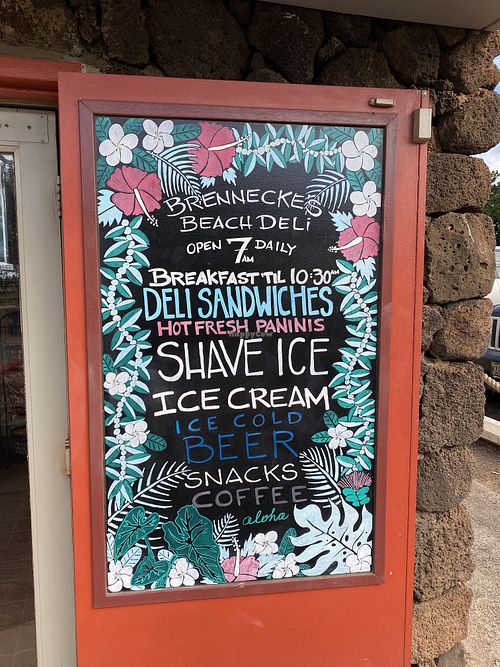 BRENNECKE'S
BEACH DELI
OPEN 7 AM DAILY
BREAKFAST TIL 10:30AM
DELI SANDWICHES
HOT FRESH PANINIS
HappyCow
SHAVE ICE
ICE CREAM
ICE COLD
BEER
SNACKS
COFFEE
aloha